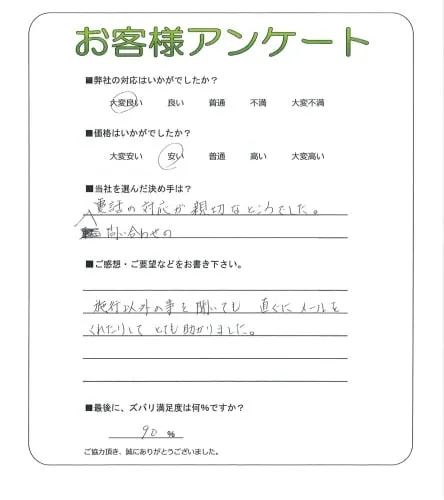 お客様アンケート
■弊社の対応はいかがでしたか?
大変良い 良い 普通 不満 大変不満
■価格はいかがでしたか?
大変安い 安い 普通 高い 大変高い
■当社を選んだ決め手は?
電話の対応が親切なところでした。
問い合わせの
■ご感想・ご要望などをお書き下さい。
施行以外の事を聞いても 直ぐにメールを
くれたりして とても助かりました。
■最後に、ズバリ満足度は何%ですか?
90 %
ご協力頂き、誠にありがとうございました。